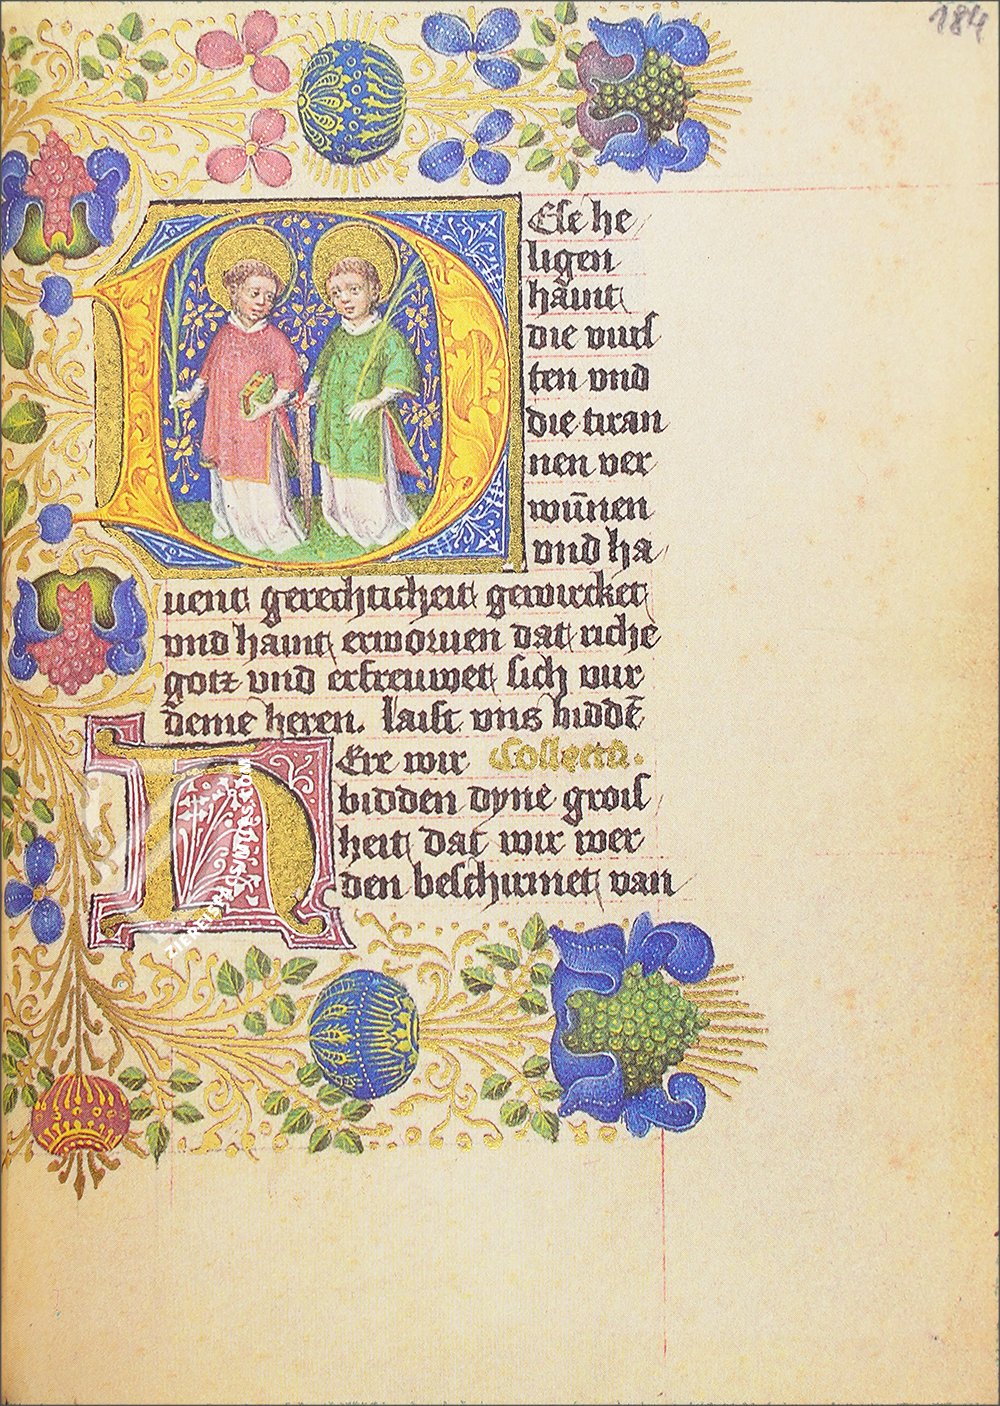 184
DEse he
ligen
haūit
die vurs
ten vnd
die tiran
nen ver
wūnen
vnd ha
uent gerechticheit gewircket
vnd hauit erworuen dat riche
gotz vnd erfreuwet sich vur
deme heren. laist vns biddē
HEre wir Collecta.
bidden dyne grois
heit dat wir wer
den beschirmet van
ZIEREISFACSIMILES.COM